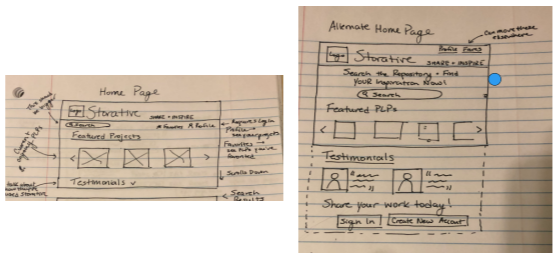 Home Page
Logo
Storative
SHARE + INSPIRE
Search
Favorites
Profile
Featured Projects
Testimonials
Requires Login
Profile →
Favorites →
Scrolls Down
Search
Results
Alternate Home Page
Can move these
elsewhere
Profile Favs
Logo
Storative
SHARE + INSPIRE
Search the Repository + Find
YOUR Inspiration Now!
Search
Featured PLPs
Testimonials
Share your work today!
Sign In
Create New Account